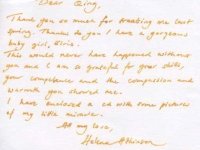 Dear Qing,
Thank you so much for treating me last
spring. Thanks to you I have a gorgeous
baby girl,
This would never have happened without
you and I am so grateful for your skills,
your competence and the compassion and
warmth you showed me.
I have enclosed a cd with some pictures
of my little miracle.
All my love,
Helena Atkinson